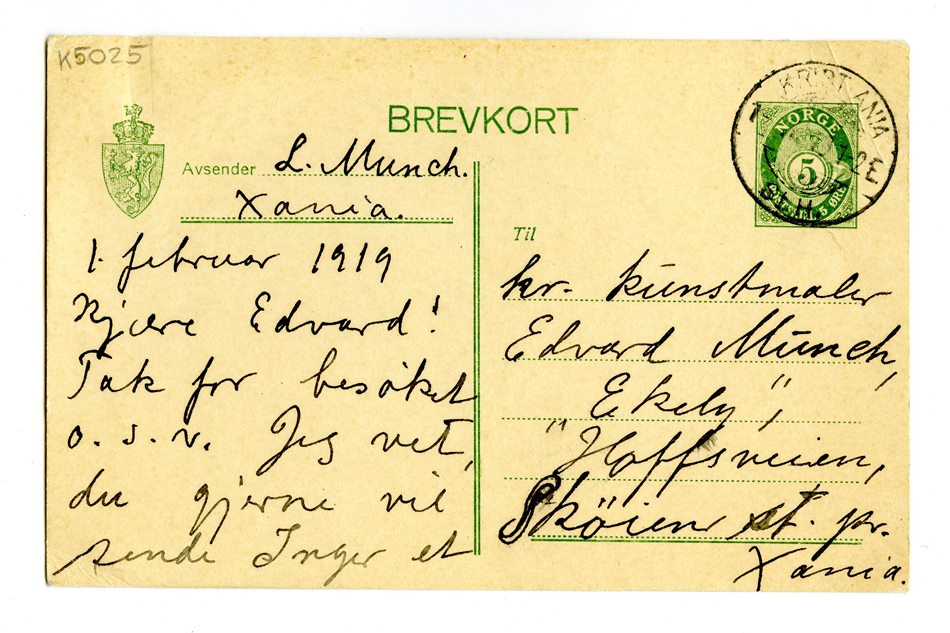 K5025
BREVKORT
Avsender L. Munch.
Xania.
1. februar 1919
Kjære Edvard!
Tak for besøket
o. s. v. Jeg vet,
du gjerne vil
sende Inger et
KRISTIANIA
NORGE
5
Til
hr. kunstmaler
Edvard Munch,
"Ekely",
Hoffsveien,
Sköien st. pr.
Xania.